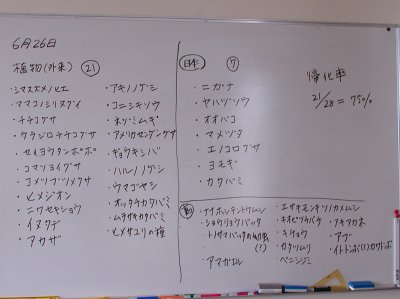 6月26日
植物(外来) 21
・シマスズメノヒエ
・ママコノシリヌグイ
・チチコグサ
・ウラジロチチコグサ
・セイヨウタンポポ
・コマツヨイグサ
・コメツブツメクサ
・ヒメジオン
・ニワゼキショウ
・イヌタデ
・アカザ
・アキノノゲシ
・コニシキソウ
・ネズミムギ
・アメリカセンダングサ
・ギョウギシバ
・ハルノノゲシ
・ウマゴヤシ
・オッタチカタバミ
・ムラサキカタバミ
・ヒメユリの種
日本 7
・ニガナ
・ヤハズソウ
・オオバコ
・マメヅタ
・エノコログサ
・ヨモギ
・カタバミ
帰化率
21/28 = 75%
動
・ナナホシテントウムシ
・ショウリョウバッタ
・トノサマバッタの幼虫
(?)
・アマガエル
・エサキモンキツノカメムシ
・キチョウ
・カタツムリ
・ベニシジミ
・アキアカネ
・アブ
・イトトンボ(?)カワトンボ